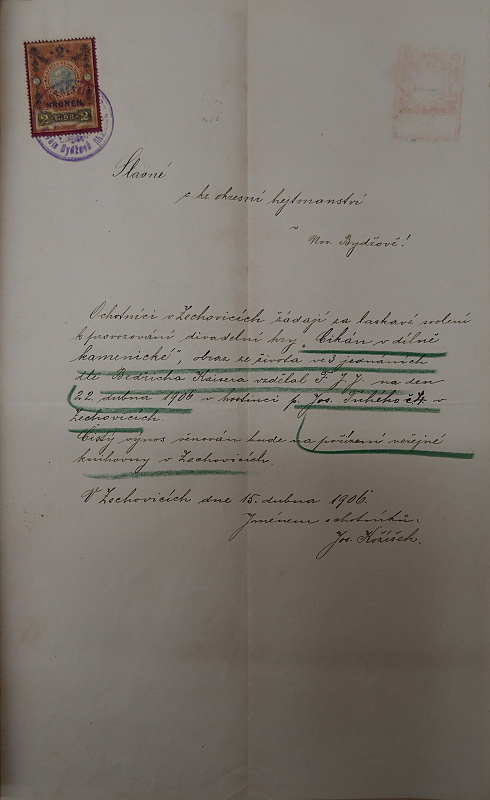 2
KRONEN
2 2
Bydžově
Slavné
c. k. okresní hejtmanství
v
Nov. Bydžově!
Ochotníci v Zechovicích žádají za laskavé svolení
k provozování divadelní hry „Cikán v dílně
kamenické", obraz ze života ve 3 jednáních
dle Bedřicha Kaisera vzdělal F. J. J. na den
22. dubna 1906 v hostinci p. Jos. Suchého č. v
Zechovicích.
Čistý výnos věnován bude na pořízení veřejné
knihovny v Zechovicích.
V Zechovicích dne 15. dubna 1906.
Jménem ochotníků:
Jos. Kožíšek.